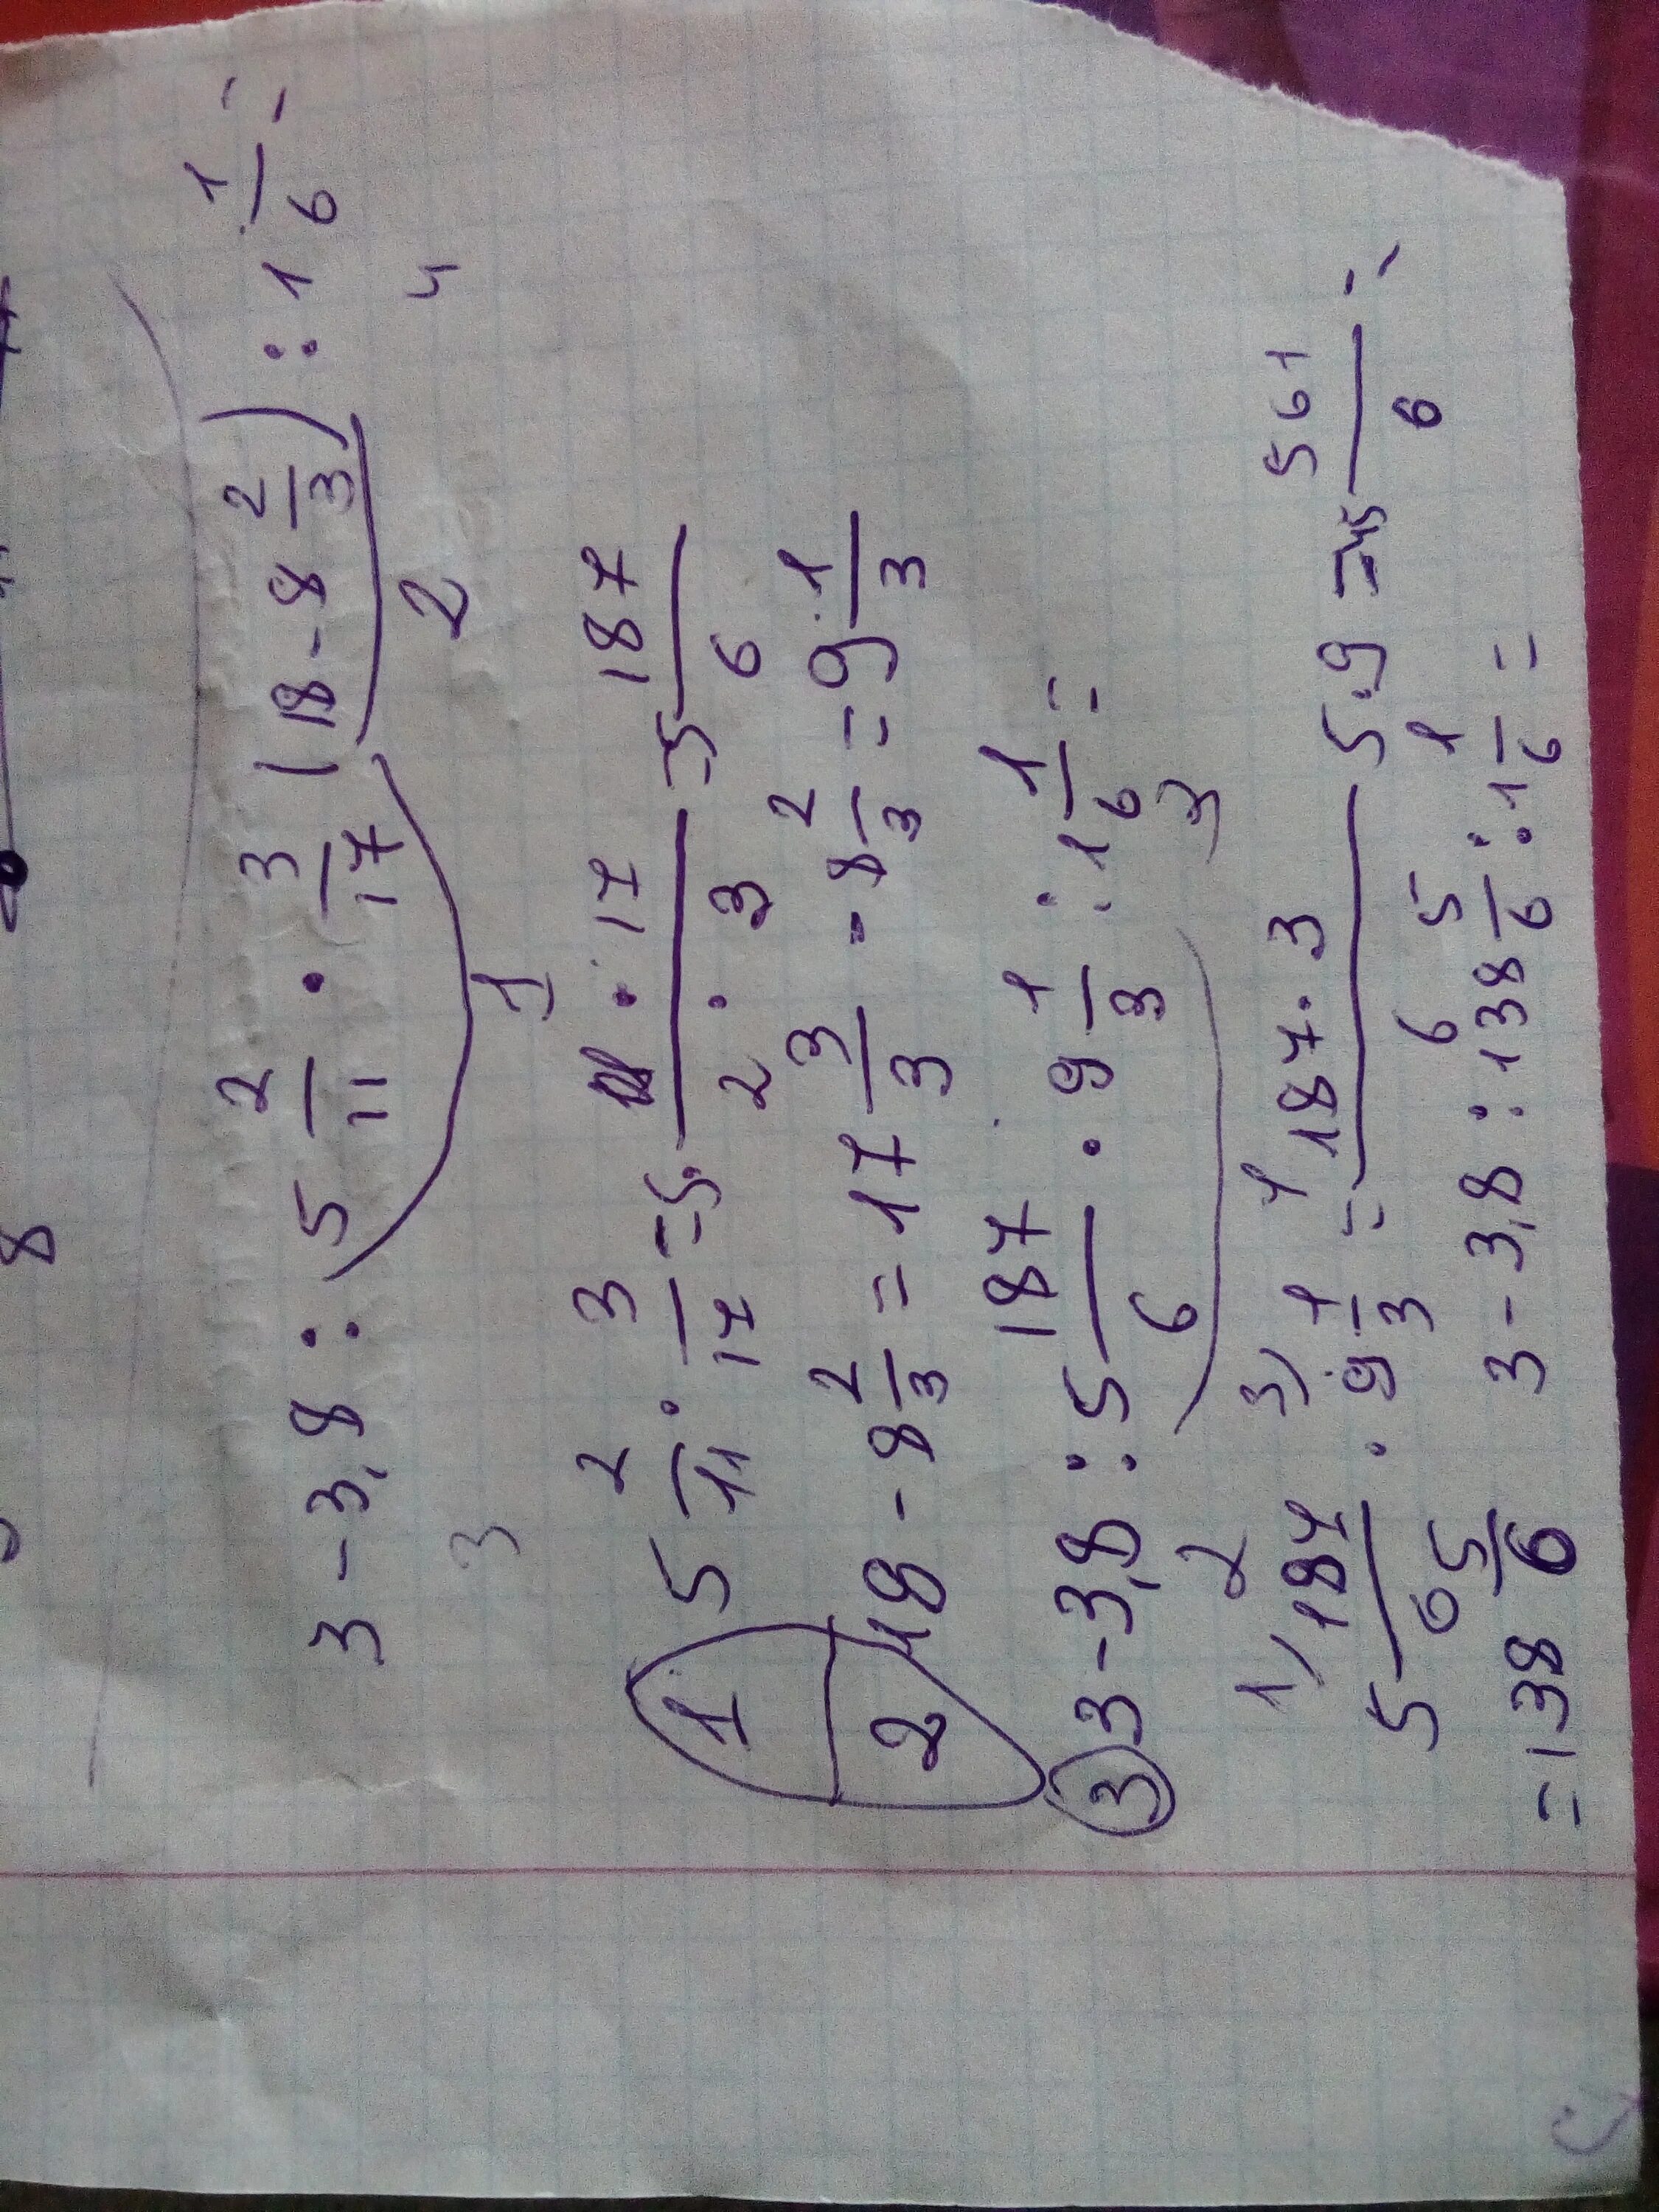 8
3 - 3,8 : 5 2/11 · 3/17 (18 - 8 2/3) : 1 1/6 =
3 1 2 4
1 5 2/11 · 3/17 = 5 11 · 17 / 2 · 3 = 5 187/6
2 18 - 8 2/3 = 17 3/3 - 8 2/3 = 9 1/3
3 3 - 3,8 : 5 187/6 · 9 1/3 : 1 1/6 =
2 3
1) 5 187/6 · 9 1/3 = 187 · 3 / 6 · 1 5 · 9 = 45 561/6 =
= 138 5/6 3 - 3,8 : 138 5/6 : 1 1/6 =